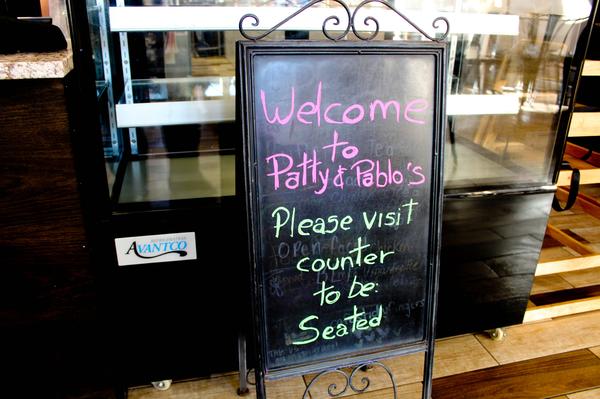 Welcome
to
Patty & Pablo's
Please visit
counter
to be:
Seated
AVANTCO